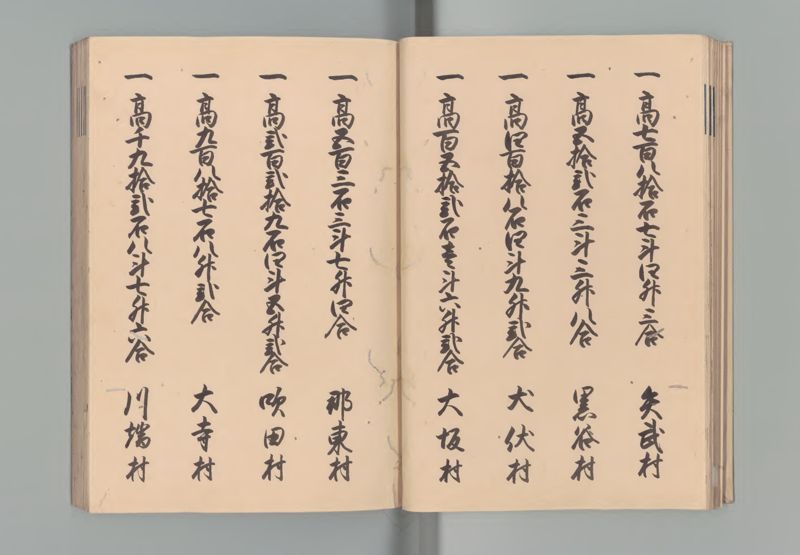 一 高七百八拾石七斗四升三合 矢武村
一 高五拾弐石二斗三升八合 黒谷村
一 高四百拾八石四斗九升弐合 犬伏村
一 高百五拾弐石壱斗六升弐合 大坂村
一 高五百三石三斗七升四合 那東村
一 高弐百弐拾九石四斗五升弐合 吹田村
一 高九百八拾七石八升弐合 大寺村
一 高千九拾弐石八斗七升六合 川端村